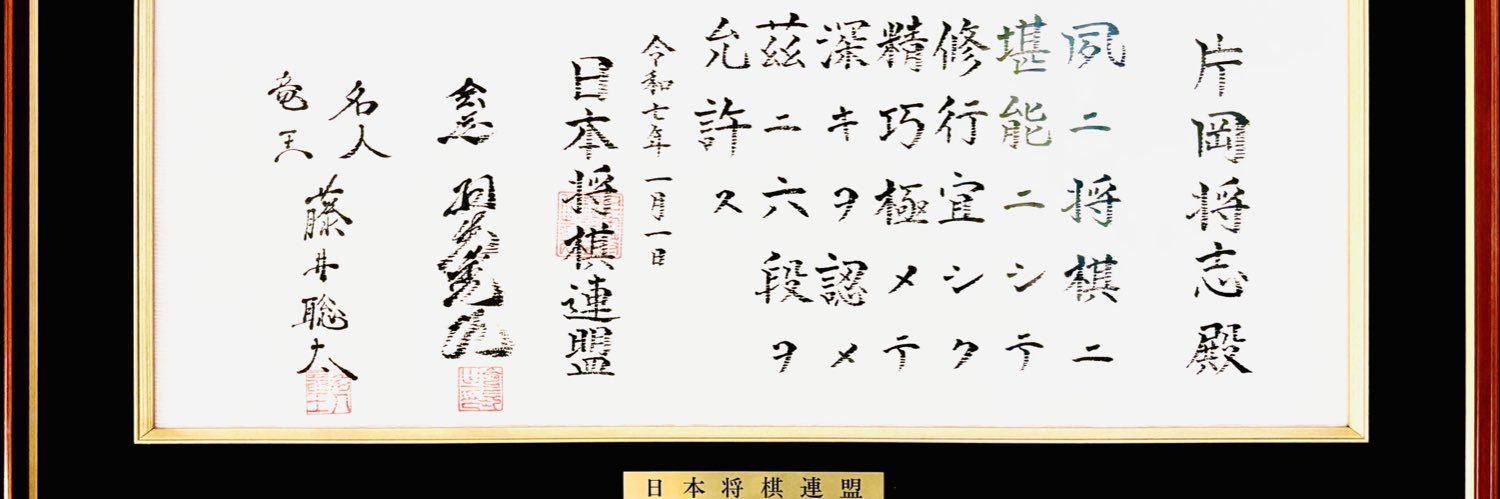 片岡将志殿
夙ニ将棋ニ
堪能ニシテ
修行宜シク
精巧極メテ
深キヲ認メ
茲ニ六段ヲ
允許ス
令和七年一月一日
日本将棋連盟
会長 羽生善治
名人
竜王
藤井聡太
日本将棋連盟